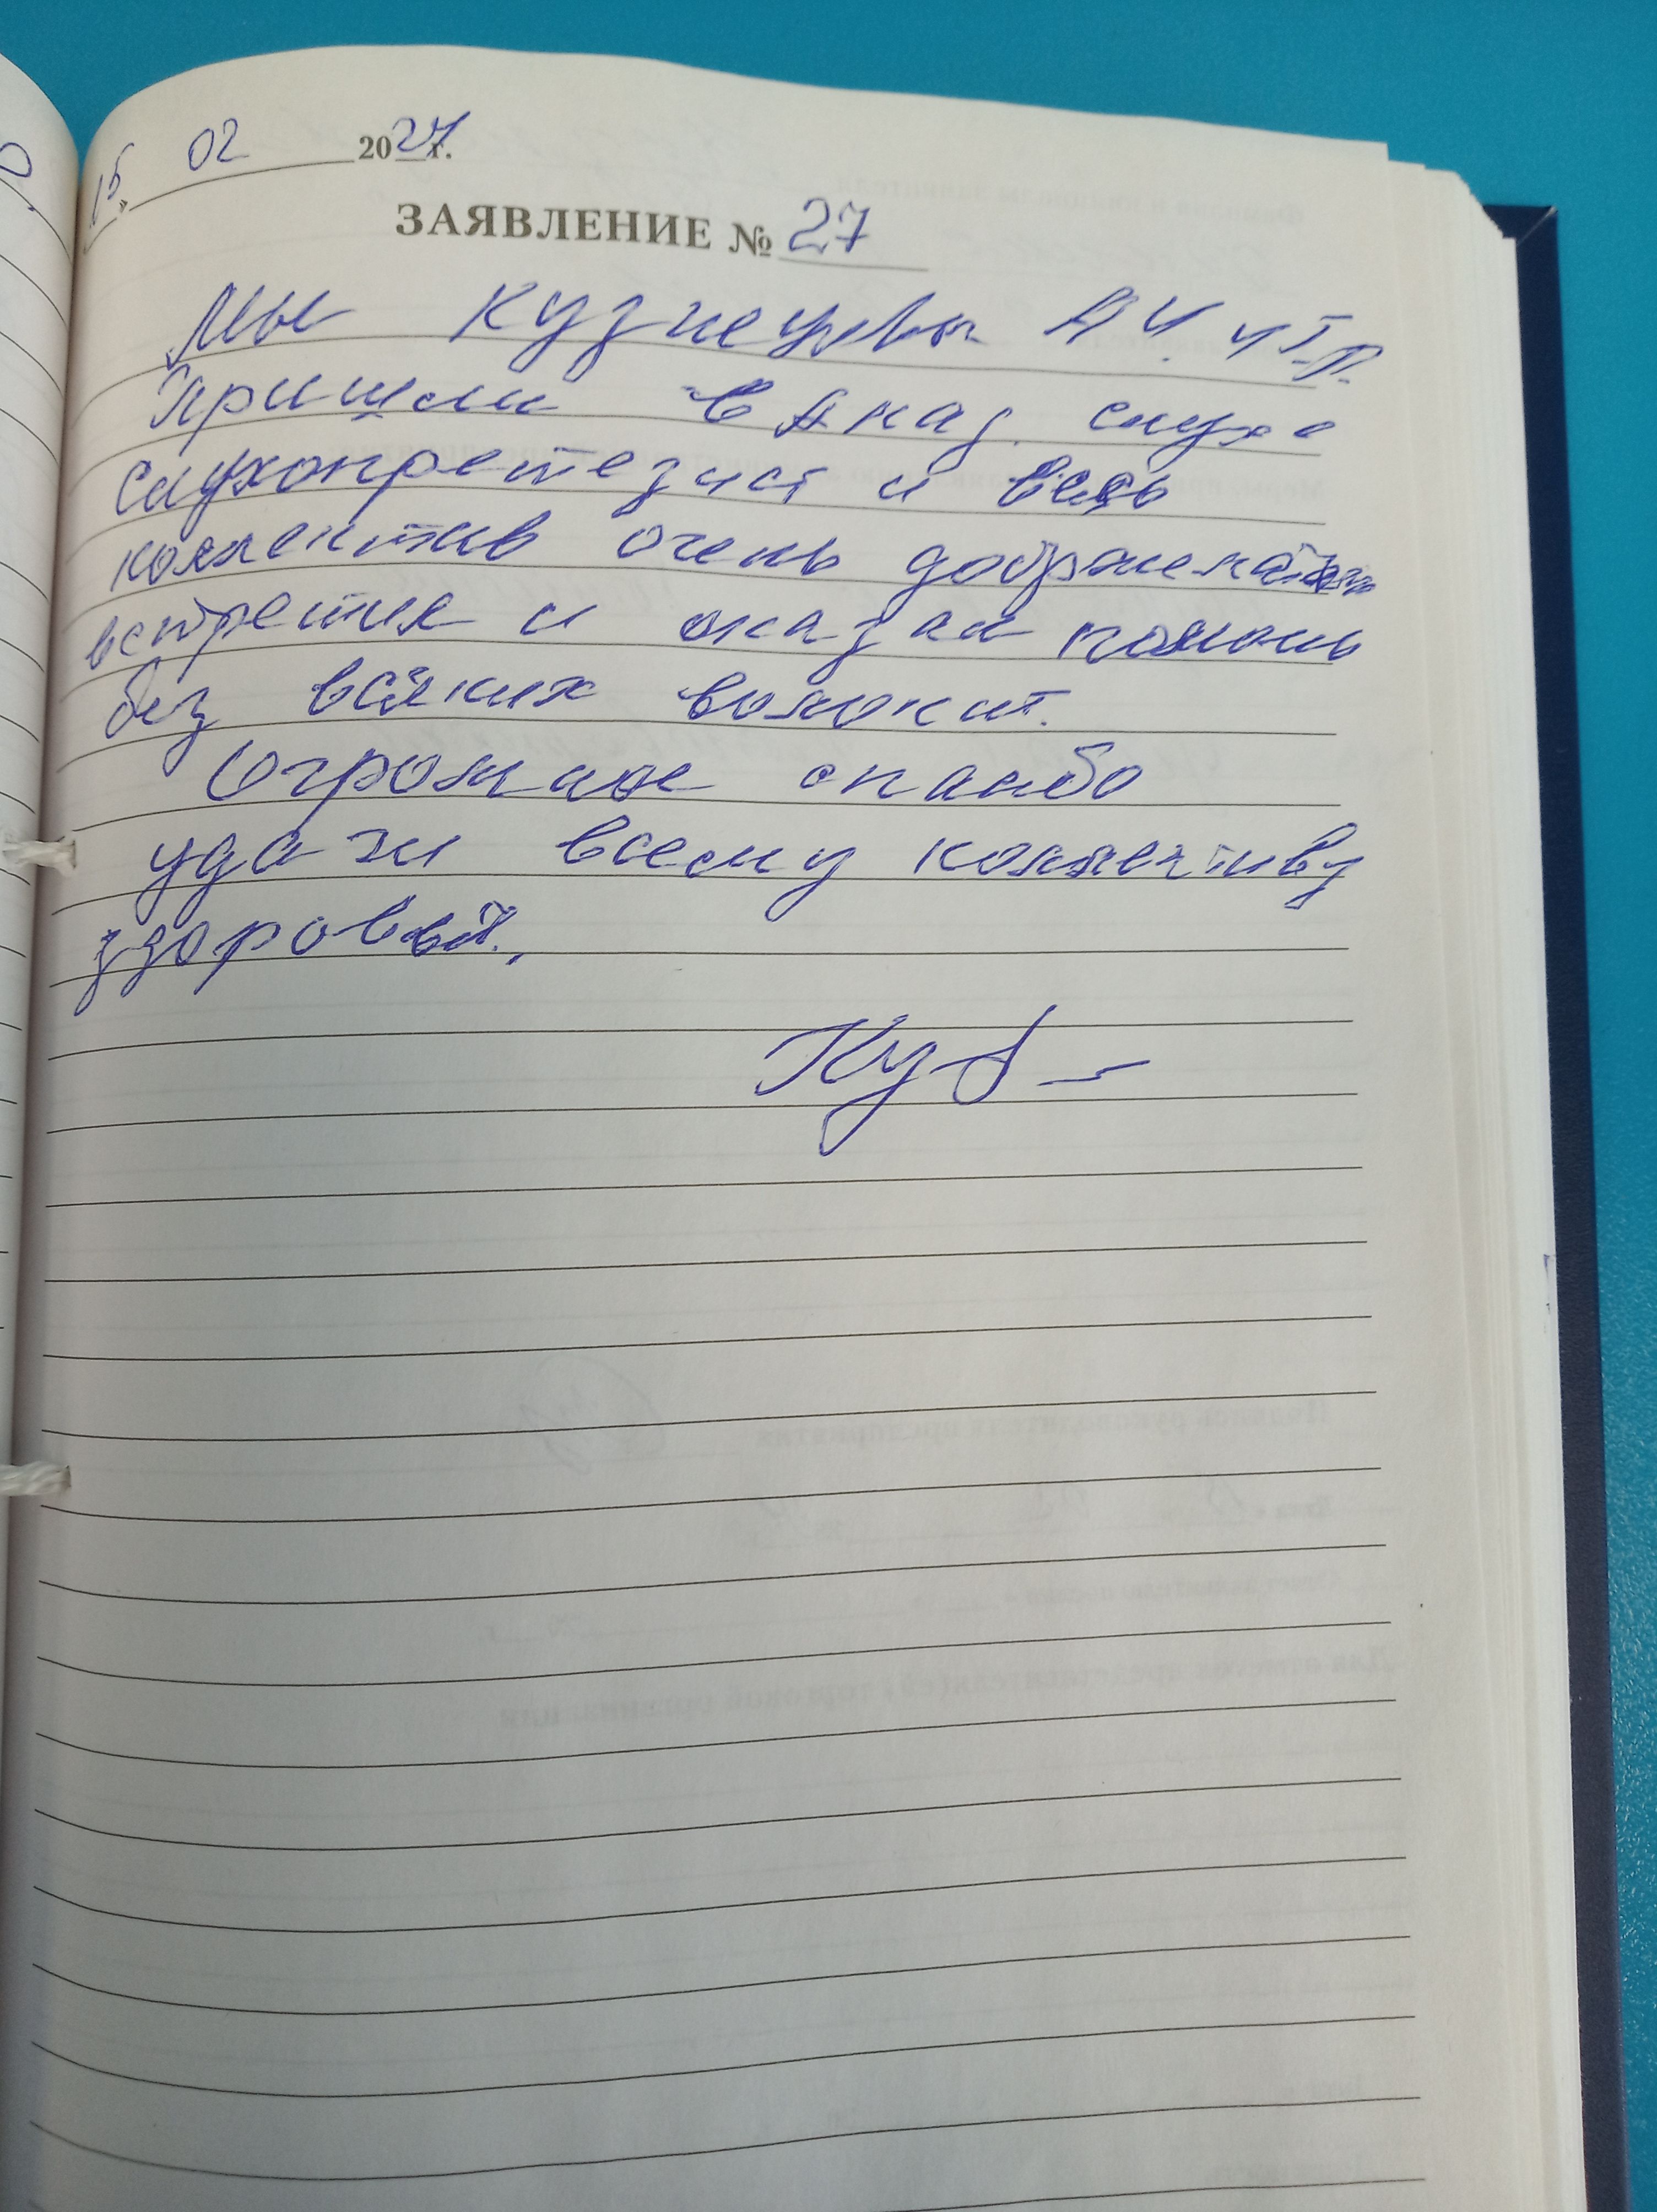 15 02 2024 г.
ЗАЯВЛЕНИЕ № 27
Мы Кузнецовы А И и Т.П.
Пришли в Акад. слуха
слухопретезист и весь
коллектив очень
встретил и оказал помощь
без всяких волокит.
Огромное спасибо
удачи всему коллективу
здоровья.